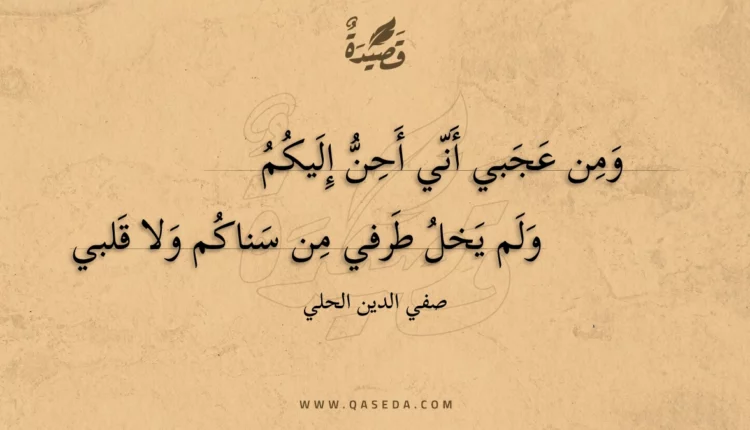 قَصِيْدَةٌ
وَمِن عَجَبي أَنّي أَحِنُّ إِلَيكُمُ
وَلَم يَخلُ طَرفي مِن سَناكُم وَلا قَلبي
صفي الدين الحلي
WWW.QASEDA.COM